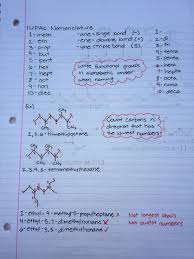 IUPAC Nomenclature
1- meth -ane= single bond (-) 1-
2- eth -ene= double bond (=) 2- di
3- prop -yne= triple bond (≡) 3- tri
4- but 4- tetra
5- pent 5- penta
6- hex 6- hexa
7- hept 7- hepta
8- oct 8- octa
9- non 9- nona
10- dec 10- deca
write functional groups
in alphabetic order
when naming
Ex)
CH3
CH3
CH3
Count carbons in
direction that has
the lowest numbers
CH3
CH3
2-ethyl-
Not longest chain
4-ethyl-5,7-dimethyloctane
Not lowest numbers
6-ethyl-3,5-dimethyloctane